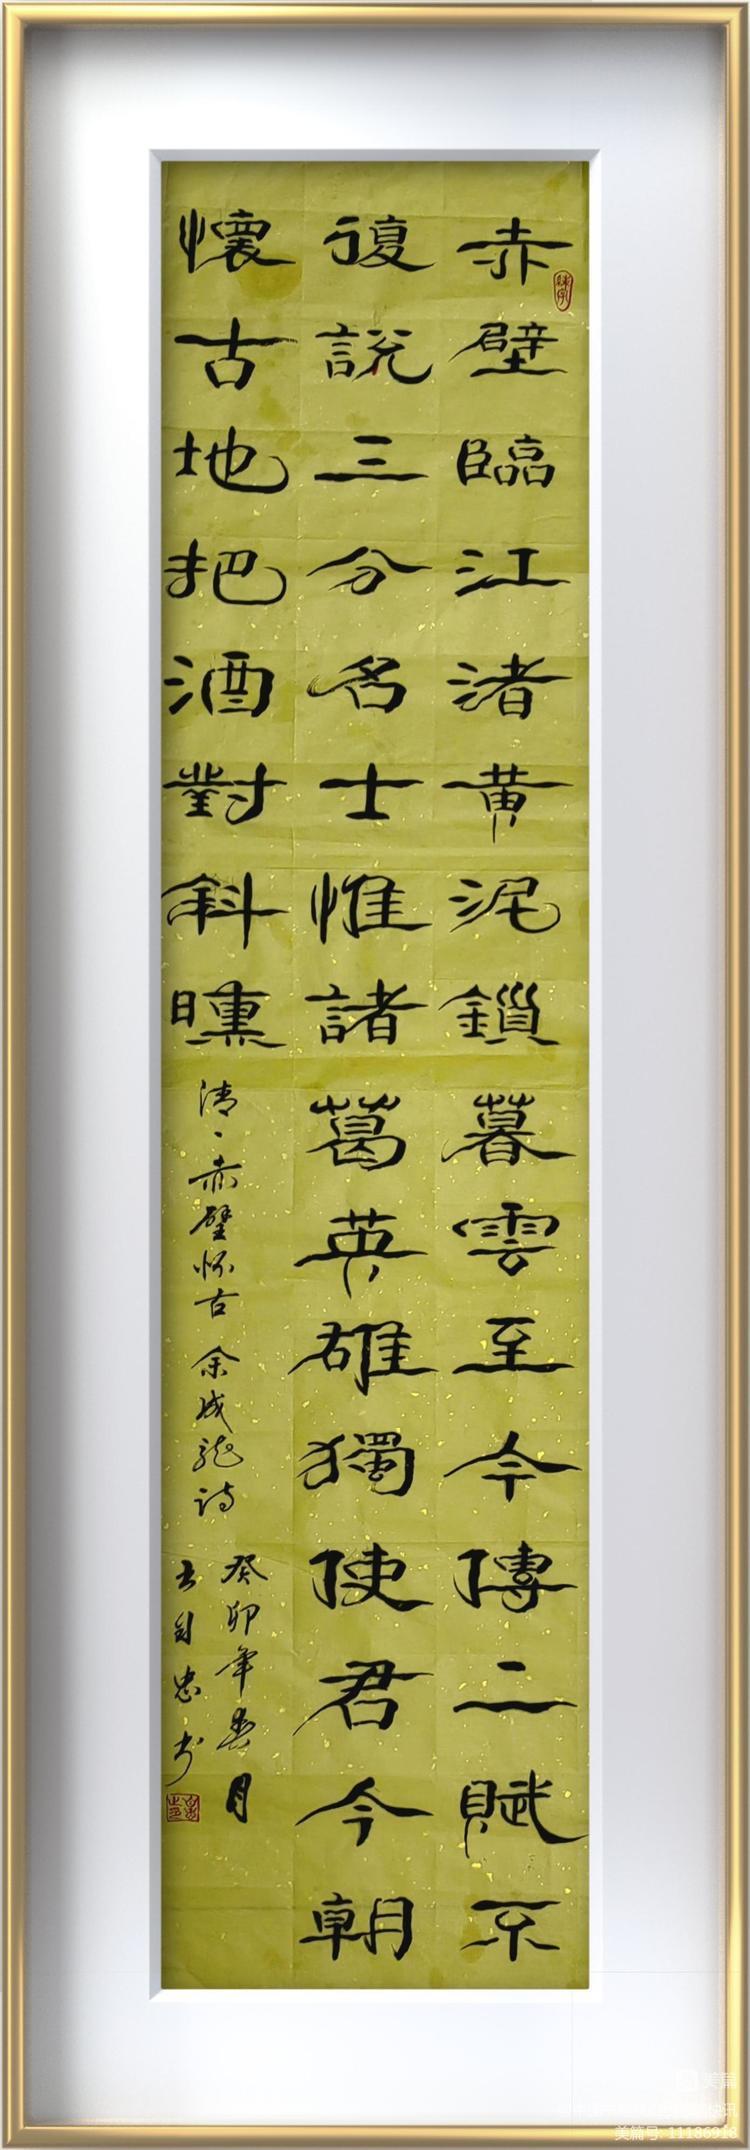 赤壁臨江渚黄泥鎖暮雲至今傳二賦不
復說三分名士惟諸葛英雄獨使君今朝
懷古地把酒對斜曛
清、赤壁怀古 余成龙诗
癸卯年春月
自忠书
美篇
美篇号: 11186918